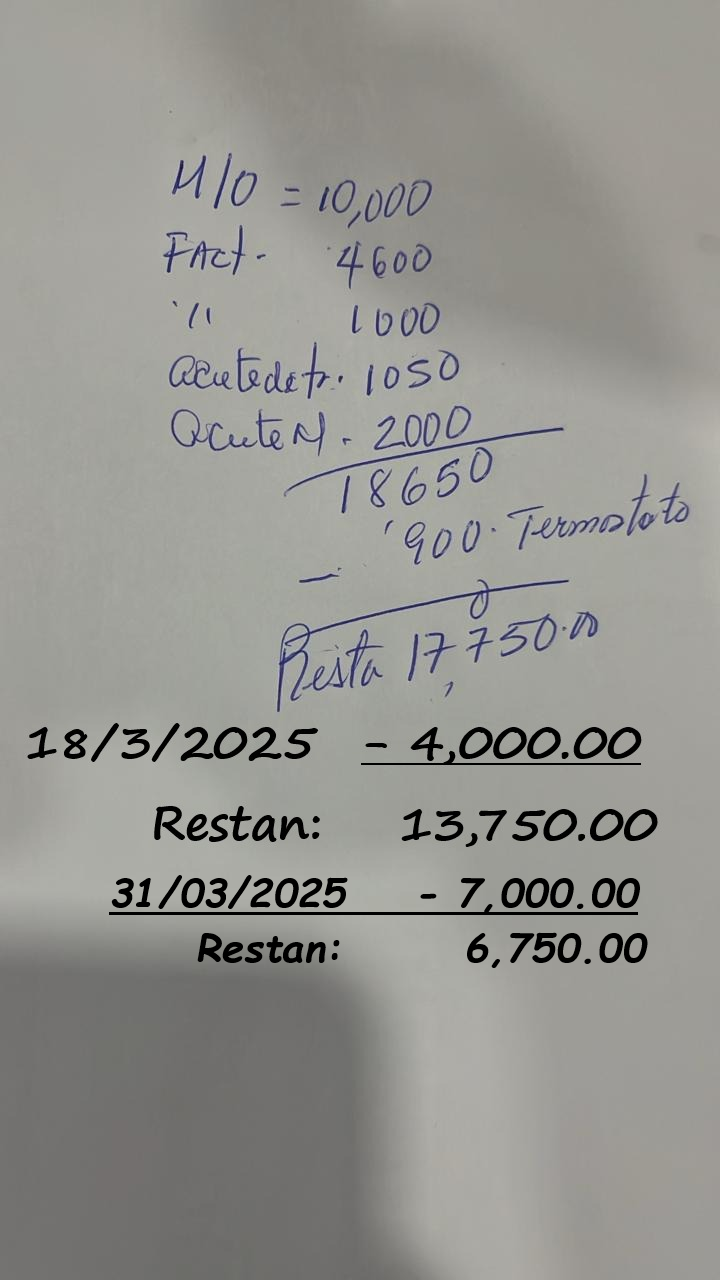 M/O = 10,000
FAct. 4600
" 1000
acutedetr. 1050
AcuteM. 2000
18650
- 900. Termostato
Resta 17,750.00
18/3/2025 - 4,000.00
Restan: 13,750.00
31/03/2025 - 7,000.00
Restan: 6,750.00